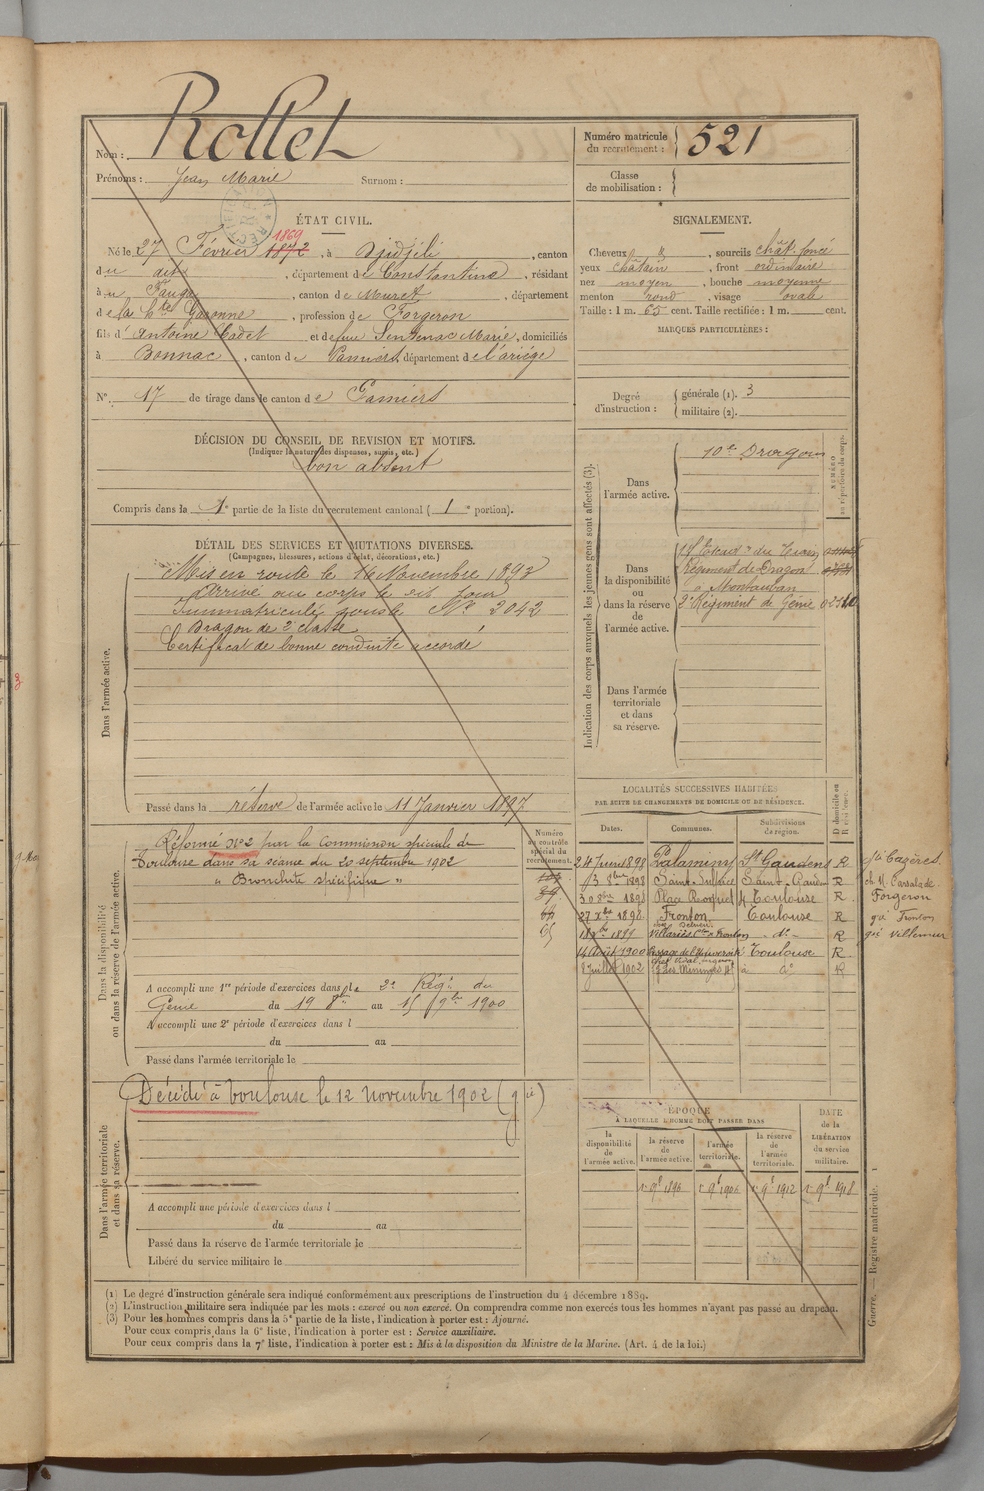 Nom : Rottet
Prénoms : Jean Marie Surnom :
Numéro matricule du recrutement : 521
Classe de mobilisation :
ÉTAT CIVIL.
Né le 27 Février 1872 1869, à Djidjéli, canton
du dit, département de Constantine, résidant
à u Fauga, canton de Muret, département
de la Hte Garonne, profession de Forgeron
fils d'Antoine Cadet et de feue Sentenac Marie, domiciliés
à Bonnac, canton de Pamiers, département de l'ariége
N° 17 de tirage dans le canton de Pamiers
SIGNALEMENT.
Cheveux &, sourcils chât. foncé
yeux châtain, front ordinaire
nez moyen, bouche moyenne
menton rond, visage ovale
Taille : 1 m. 65 cent. Taille rectifiée : 1 m. cent.
MARQUES PARTICULIÈRES :
Degré d'instruction : générale (1). 3
militaire (2).
DÉCISION DU CONSEIL DE REVISION ET MOTIFS.
(Indiquer la nature des dispenses, sursis, etc.)
bon absent
Compris dans la 1e partie de la liste du recrutement cantonal (1e portion).
DÉTAIL DES SERVICES ET MUTATIONS DIVERSES.
(Campagnes, blessures, actions d'éclat, décorations, etc.)
Dans l'armée active.
Mis en route le 16 Novembre 1893
Arrivé au corps le dit jour
Immatriculé sous le N° 2042
Dragon de 2e classe
Certificat de bonne conduite accordé
Passé dans la réserve de l'armée active le 11 Janvier 1897
Indication des corps auxquels les jeunes gens sont affectés (3).
NUMÉRO au répertoire du corps.
Dans l'armée active.
10e Dragons
Dans la disponibilité ou dans la réserve de l'armée active.
Escadn du Train
Régiment de Dragon
à Montauban
2e Régiment de Génie
Dans l'armée territoriale et dans sa réserve.
Dans la disponibilité ou dans la réserve de l'armée active.
Numéro au contrôle spécial du recrutement.
Réformé n°2 par la Commission spéciale de
Toulouse dans sa séance du 20 septembre 1902
" Bronchite spécifique "
A accompli une 1re période d'exercices dans le 2e Régt du
Génie du 19 8bre au 15 9bre 1900
A accompli une 2e période d'exercices dans l
du au
Passé dans l'armée territoriale le
LOCALITÉS SUCCESSIVES HABITÉES
PAR SUITE DE CHANGEMENTS DE DOMICILE OU DE RÉSIDENCE.
Dates. Communes. Subdivisions de région. D domicile ou R résidence.
24 Juin 1898 Palaminy St Gaudens R Cazères
13 8bre 1898 Saint-Sulpice Saint-Gaud R
30 8bre 1898 Toulouse R Forgeron
27 Xbre 1898 Fronton Toulouse R gie Fronton
1899 Villariès Con Fronton - d° - R gie Villemur
14 Août 1900 Toulouse R
8 Juillet 1902 à d° R
Dans l'armée territoriale et dans sa réserve.
Décédé à Toulouse le 12 Novembre 1902 (gie)
A accompli une période d'exercices dans l
du au
Passé dans la réserve de l'armée territoriale le
Libéré du service militaire le
ÉPOQUE
À LAQUELLE L'HOMME DOIT PASSER DANS
la disponibilité de l'armée active. la réserve de l'armée active. l'armée territoriale. la réserve de l'armée territoriale.
DATE de la LIBÉRATION du service militaire.
1er 9bre 1896 1er 9bre 1906 1er 9bre 1912 1er 9bre 1918
Guerre. — Registre matricule. 1
(1) Le degré d'instruction générale sera indiqué conformément aux prescriptions de l'instruction du 4 décembre 1889.
(2) L'instruction militaire sera indiquée par les mots : exercé ou non exercé. On comprendra comme non exercés tous les hommes n'ayant pas passé au drapeau.
(3) Pour les hommes compris dans la 5e partie de la liste, l'indication à porter est : Ajourné.
Pour ceux compris dans la 6e liste, l'indication à porter est : Service auxiliaire.
Pour ceux compris dans la 7e liste, l'indication à porter est : Mis à la disposition du Ministre de la Marine. (Art. 4 de la loi.)